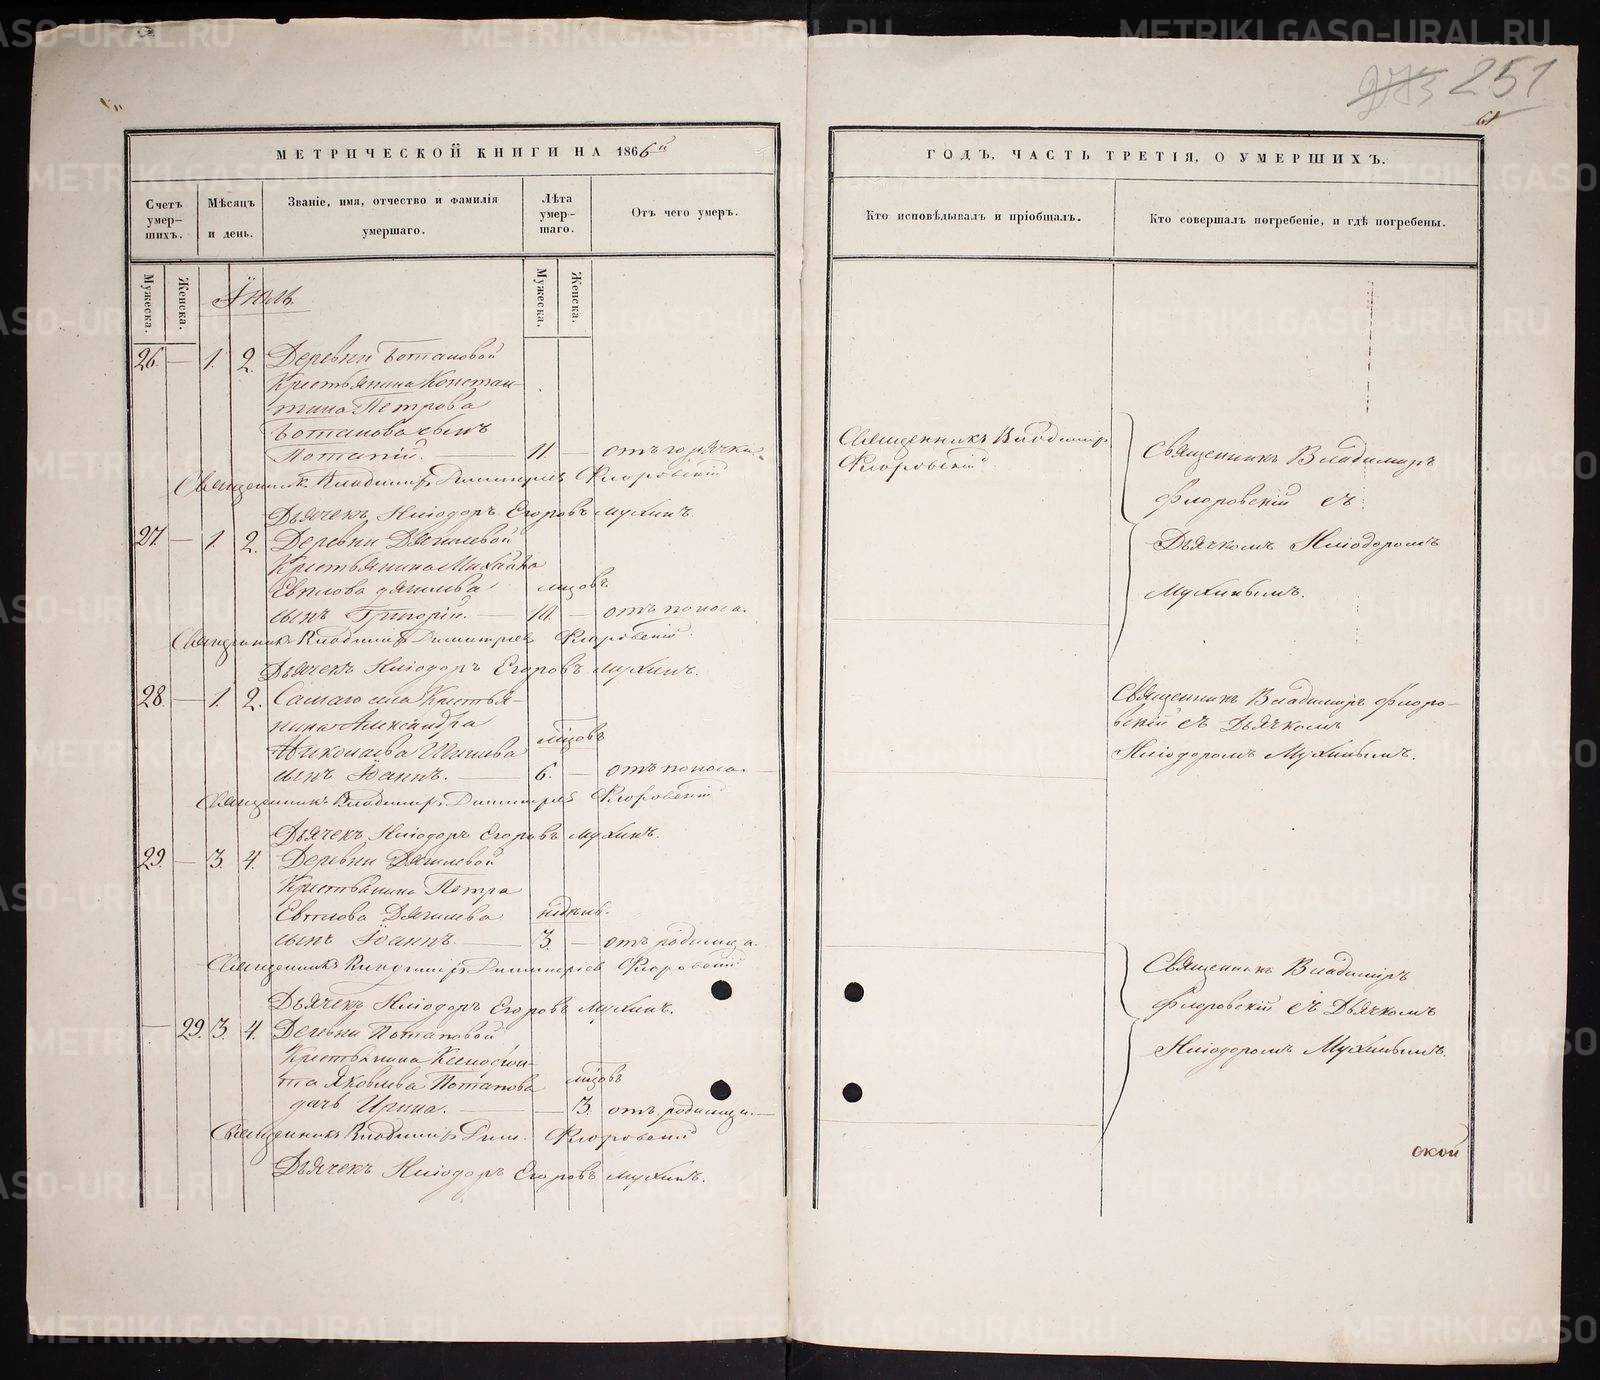 273 251
61
МЕТРИЧЕСКОЙ КНИГИ НА 1866й
ГОДЪ, ЧАСТЬ ТРЕТІЯ, О УМЕРШИХЪ.
Счетъ умер-шихъ.
Мѣсяцъ и день.
Званіе, имя, отчество и фамилія умершаго.
Лѣта умер-шаго.
Отъ чего умеръ.
Кто исповѣдывалъ и пріобщалъ.
Кто совершалъ погребеніе, и гдѣ погребены.
Мужеска.
Женска.
Мужеска.
Женска.
Іюль.
26. — 1. 2. Деревни Потаповой
Крестьянина Констан-
тина Петрова
Потапова сынъ
Потапій. — 11 — отъ горячки.
Священникъ Владимиръ Димитріевъ Флоровскій
Дьячекъ Иліодоръ Егоровъ Мухинъ.
27. — 1. 2. Деревни Дягилевой
Крестьянина Михаила
Евтлова Дягилева
мцовъ
сынъ Григорій. — 10. — отъ поноса.
Священникъ Владимиръ Димитріевъ Флоровскій.
Дьячекъ Иліодоръ Егоровъ Мухинъ.
28. — 1. 2. Самаго села Крестья-
нина Александра
Николаева
мцовъ
сынъ Іоаннъ. — 6. — отъ поноса.
Священникъ Владимиръ Димитріевъ Флоровскій
Дьячекъ Иліодоръ Егоровъ Мухинъ.
29. — 3. 4. Деревни Дягилевой
Крестьянина Петра
Евтлова Дягилева
недѣль.
сынъ Іоаннъ. — 3. — отъ родимца.
Священникъ Владимиръ Димитріев Флоровскій
Дьячекъ Иліодоръ Егоровъ Мухинъ.
— 29. 3. 4. Деревни Потаповой
Крестьянина Ксенофон-
та Яковлева Потапова
мцовъ
дочь Ирина. — — 3. отъ родимца. —
Священникъ Владимиръ Дим. Флоровскій
Дьячекъ Иліодоръ Егоровъ Мухинъ.
Священникъ Владимиръ
Флоровскій.
Священникъ Владимиръ
Флоровскій съ
Дьячкомъ Иліодоромъ
Мухинымъ.
Священникъ Владимиръ Флоро-
вскій съ Дьячкомъ
Иліодоромъ Мухинымъ.
Священникъ Владимиръ
Флоровскій съ Дьячкомъ
Иліодоромъ Мухинымъ.
ской
METRIKI.GASO-URAL.RU